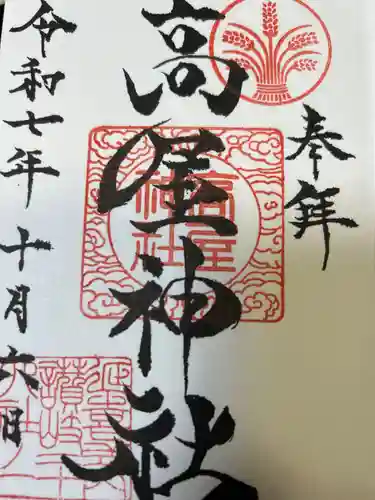 奉拝
高屋神社
高屋神社
令和七年十月六日